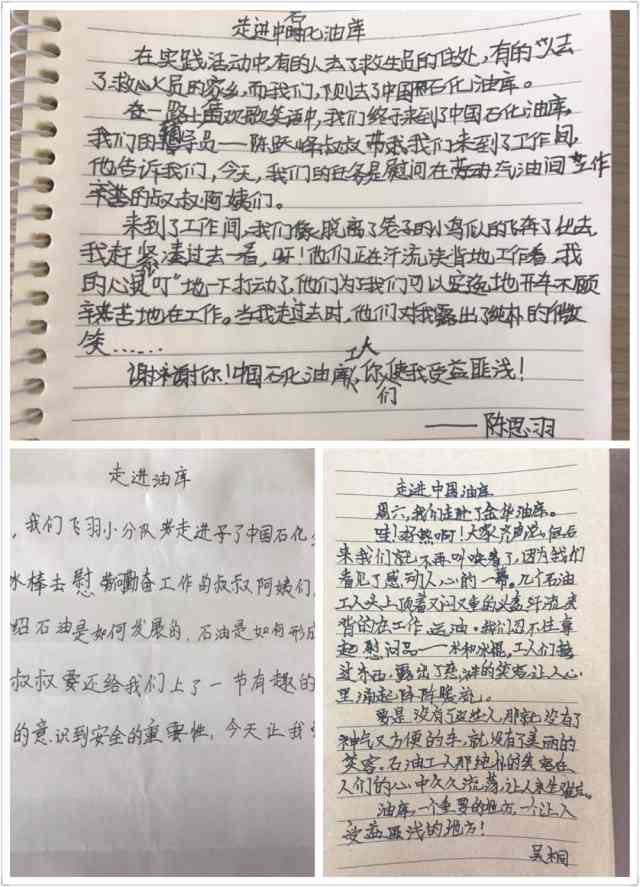 走进中石化油库
在实践活动中有的人去了救生员的住处,有的人去
了救火员的家乡,而我们,则去了中国石化油库。
在一路上的欢歌笑语中,我们终于来到了中国石化油库,
我们的辅导员——陈跃峰叔叔带我我们来到了工作间,
他告诉我们,今天,我们的任务是慰问在劳动汽油间工作
辛苦的叔叔阿姨们。
来到了工作间,我们像脱离了笼子的小鸟似的飞奔了出去,
我赶紧凑过去一看,呀!他们正在汗流浃背地工作着,我
的心里“叮”地一下打动了,他们为了我们可以安逸地开车不顾
辛苦地在工作。当我走过去时,他们对我露出了纯朴的微
笑……
谢谢你!中国石化油库工人,你们使我受益匪浅!
——陈思羽
走进油库
,我们飞羽小分队走进了中国石化
冰棒去慰问勤奋工作的叔叔阿姨们
绍石油是如何发展的,石油是如何形成
叔叔还给我们上了一节有趣的
的意识到安全的重要性,今天让我
走进中国油库
周六,我们走了金华油库。
哇!好热啊!大家齐声说,但后
来我们就不再叫唤着了,因为我们
看见了感动人心的一幕。几个石油
工人头上顶着又闷又重的头盔汗流浃
背的在工作、运油。我们忍不住拿
起慰问品——水和冰棍,工人们接
过东西,露出了的笑容,让人心
里涌起阵阵暖流。
要是没有了这些人,那就没有了
神气又方便的车,就没有了美丽的
笑容。石油工人那纯朴的笑容在
人们的心中久久流荡,让人永生难忘。
油库,一个重要的地方,一个让人
受益匪浅的地方!
吴桐